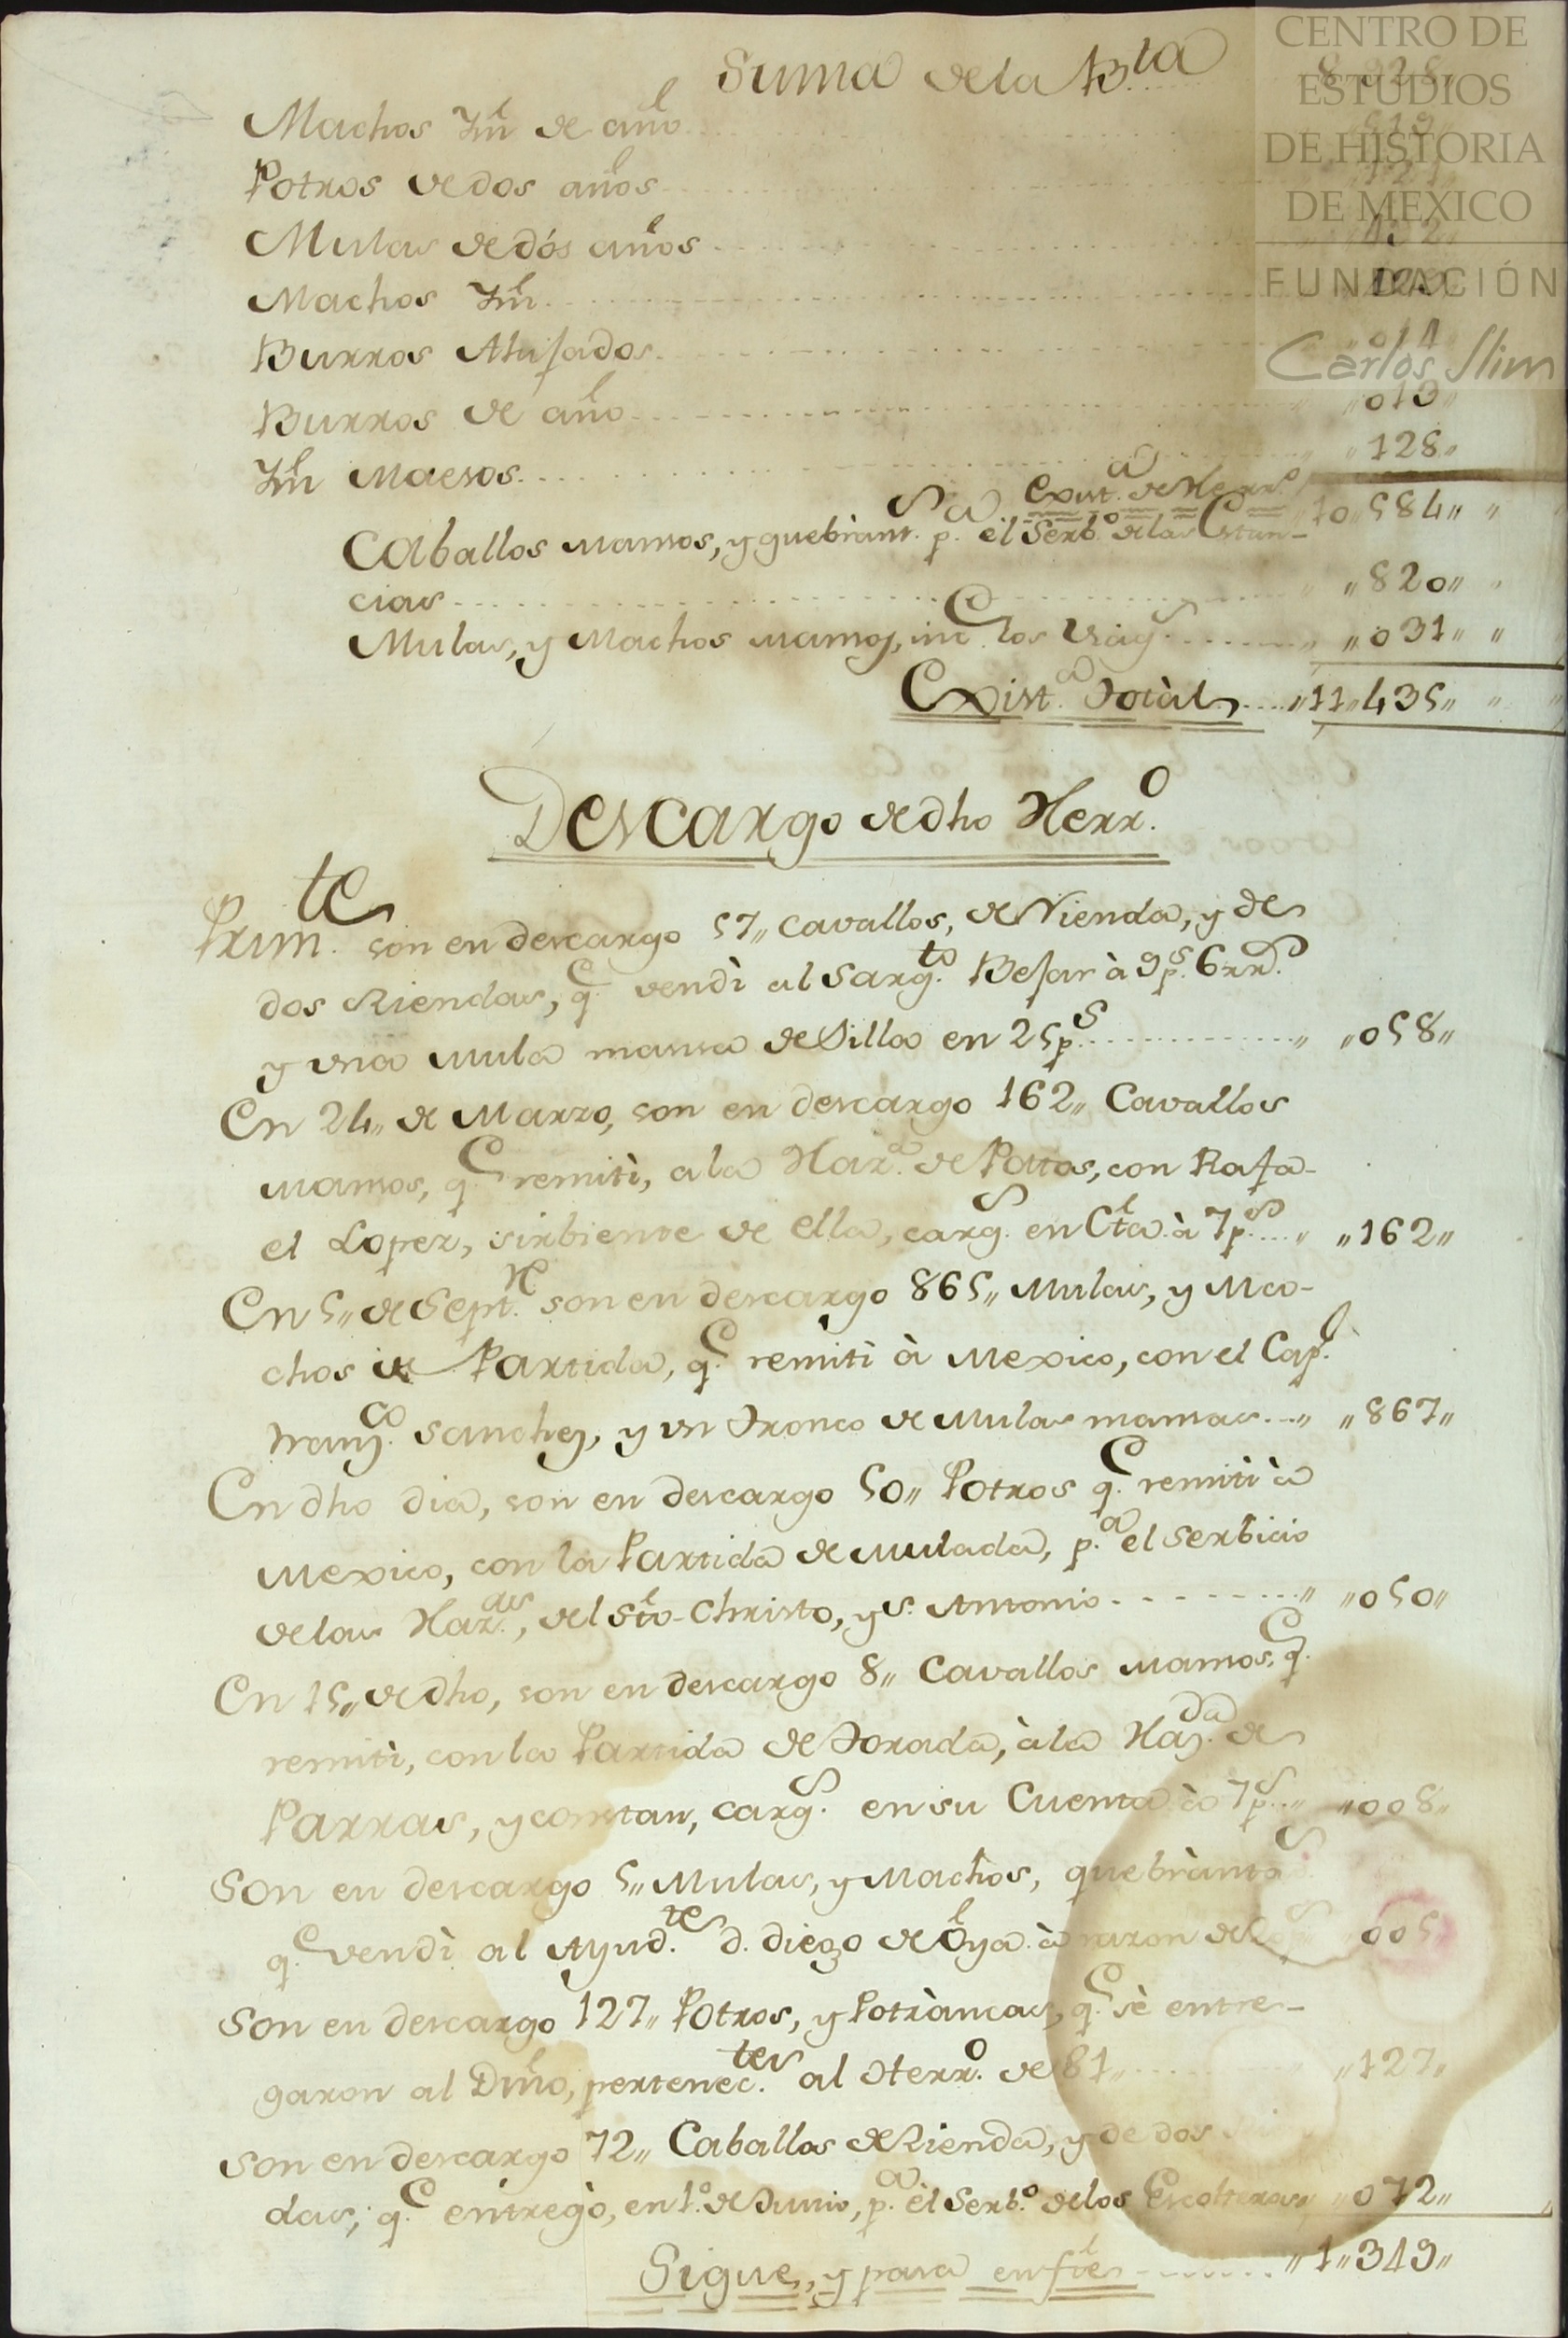 CENTRO DE
ESTUDIOS
DE HISTORIA
DE MEXICO
FUNDACIÓN
Carlos Slim
Suma de la B.ta
Machos Ym̃ de año
Potros de dos años
Mulas de dós años
Machos Ym̃
Burros Atajados „014
Burros de año „013„
Ym̃ Maesos „128„
S.a Exist.a de Herr.o „10„584„
Caballos mansos, y quebrant.s p.a el Serb.o de las Estan-
cias „820„
Mulas, y Machos mansos, inc los „031„
Exist.a Totàl „11„435„
Descargo de dho Herr.o
Prim.te son en descargo 57„ Cavallos, de Rienda, y de
dos Riendas, q.e vendì al Sarg.to Bejar à 9p.s 6rr.s
y vna Mula mansa de Silla en 25p.s „058„
En 24„ de Marzo, son en descargo 162„ Cavallos
Mansos, q.e remitì, a la Haz.a de Patos, con Rafa-
el Lopez, sirbiente de ella, carg.s en Cta à 7p.s „162„
En 5„ de Sept.re son en descargo 865„ Mulas, y Ma-
chos de Partida, q.e remitì à Mexico, con el Cap.l
Fran.co Sanchez, y vn Tronco de Mulas mansas „867„
En dho dia, son en descargo 50„ Potros q.e remitì à
Mexico, con la Partida de Mulada, p.a el Serbicio
de las Haz.das, del Sto Christo, y S. Antonio „050„
En 15„ de dho, son en descargo 8„ Cavallos mansos, q.e
remitì, con la Partida de Torada, à la Haz.da de
Parras, y constan, carg.s en su Cuenta à 7p.s „008„
Son en descargo 5„ Mulas, y Machos, quebrànta.s
q.e vendì al Ayud.te d. Diego de Oya à razon de „005„
Son en descargo 127„ Potros, y Potràncas, q.e sè entre-
garon al Dm̃o, pertenec.tes al Herr.o de 81„ „127„
Son en descargo 72„ Caballos de Rienda, y de dos Rien
das, q.e entregò, en 1.o de Junio, p.a èl Serb.o de los Escolteros „072„
Sigue, y pasa enfte „1„349„